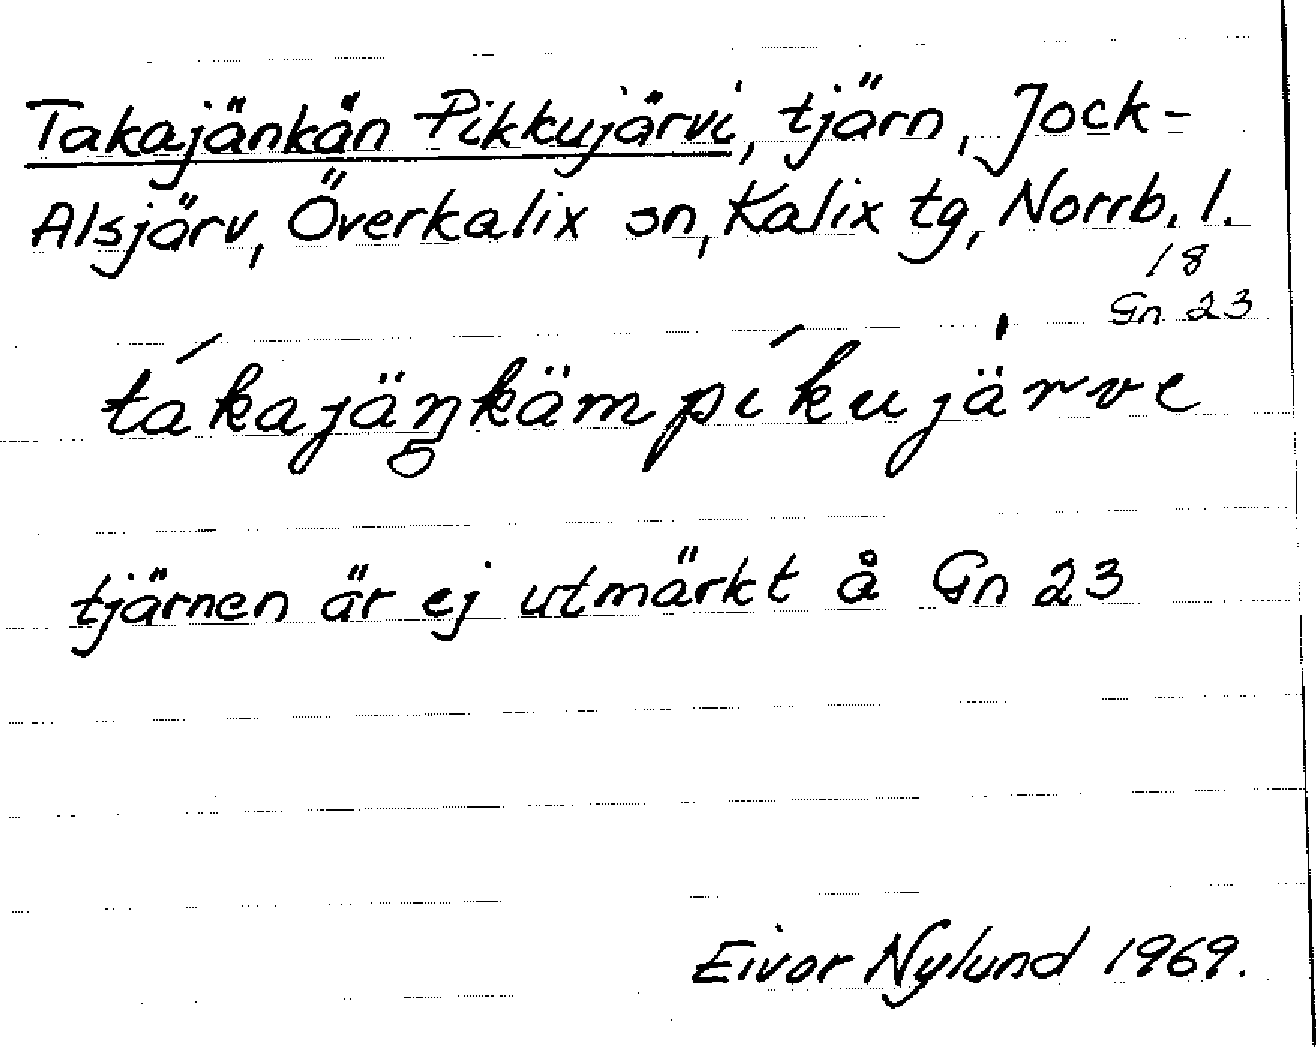 Takajänkän Pikkujärvi, tjärn, Jock-
Alsjärv, Överkalix sn, Kalix tg, Norrb. l.
18
Gn 23
tákajäŋkäm píkujärve
tjärnen är ej utmärkt å Gn 23
Eivor Nylund 1969.